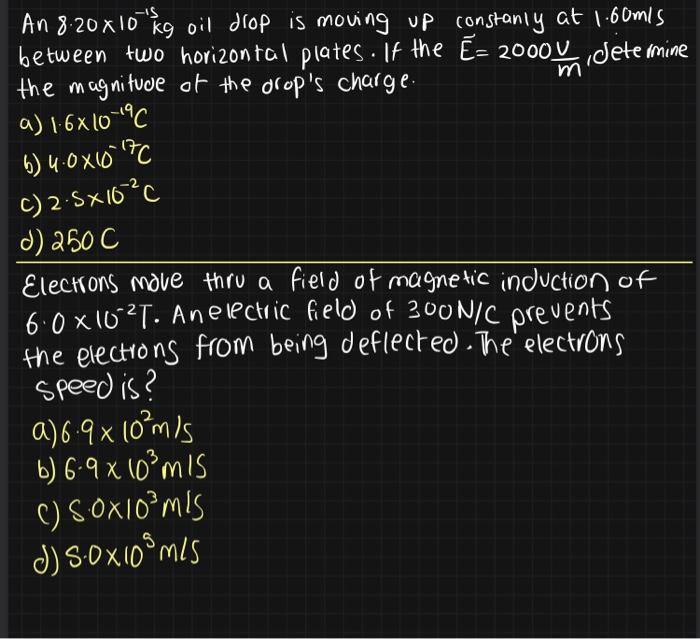 An 8.20x10⁻¹⁵kg oil drop is moving up constanly at 1.60m/s
between two horizontal plates. If the E⃗= 2000 V/m, determine
the magnitude of the drop's charge.
a) 1.6x10⁻¹⁹C
b) 4.0x10⁻¹⁷C
c) 2.5x10⁻²C
d) 250C
Electrons move thru a field of magnetic induction of
6.0 x10⁻²T. An electric field of 300N/C prevents
the electrons from being deflected. The electrons
speed is?
a) 6.9 x 10²m/s
b) 6.9 x 10³m/s
c) 5.0x10³m/s
d) 5.0x10⁵m/s